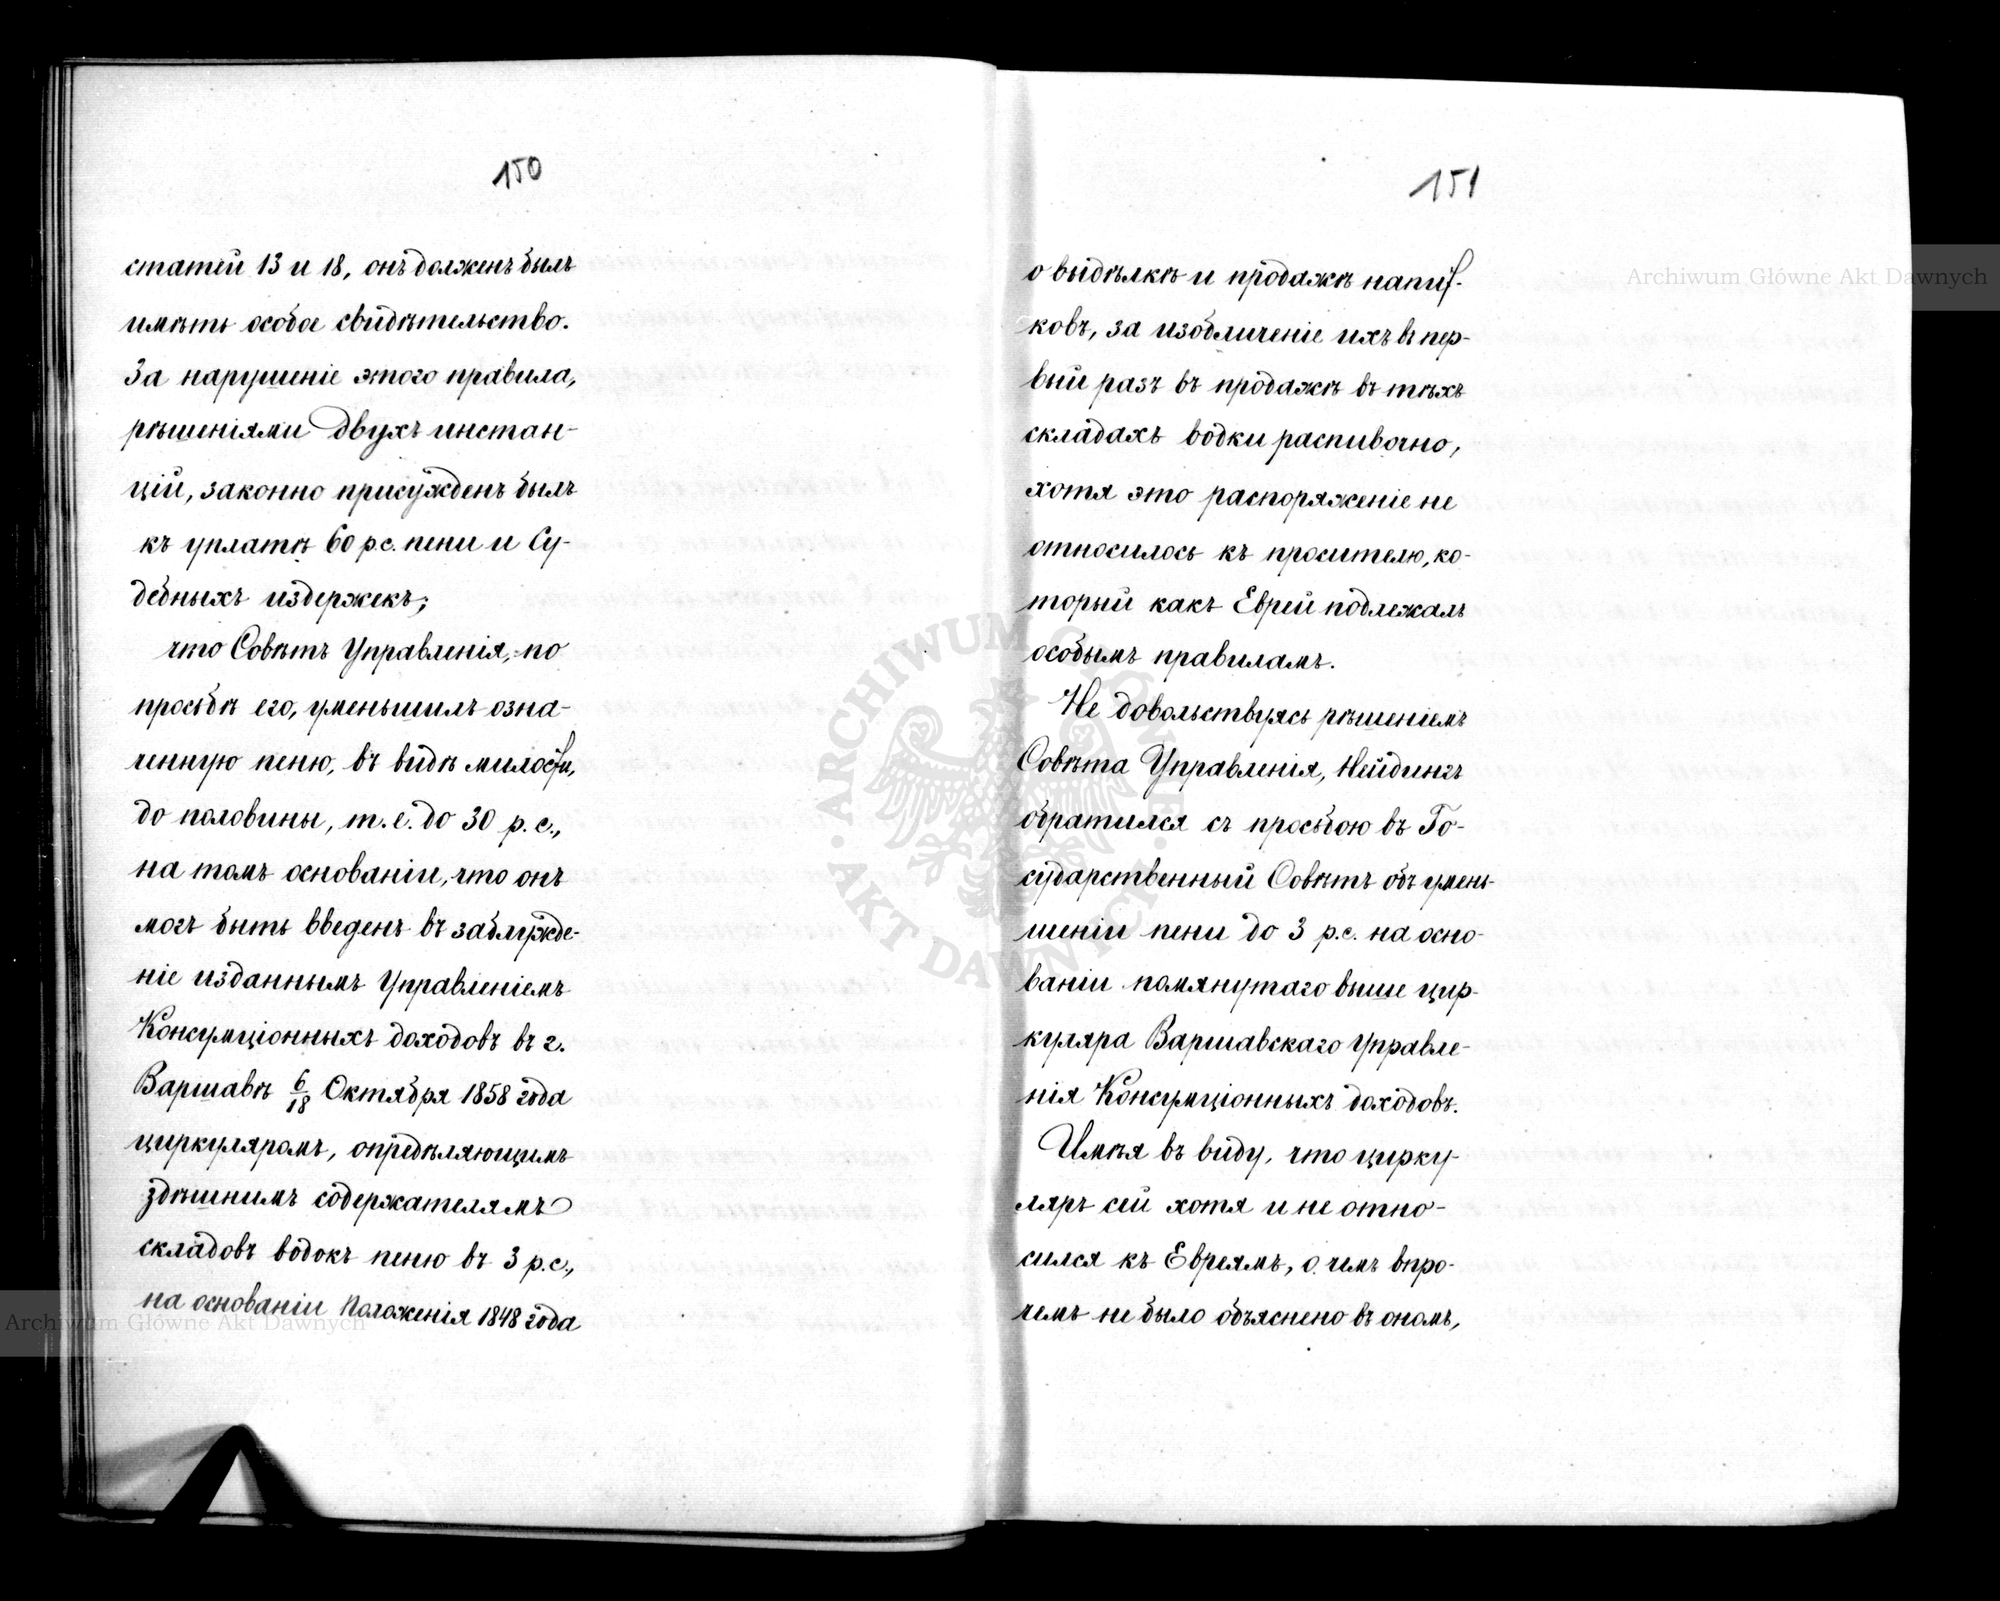 150
статей 13 и 18, онъ долженъ былъ
имѣть особое свидѣтельство.
За нарушеніе этого правила,
рѣшеніями двухъ инстан-
цій, законно присужденъ былъ
къ уплатѣ 60 р.с. пени и Су-
дебныхъ издержекъ;
что Совѣтъ Управленія, по
просьбѣ его, уменьшилъ озна-
ченную пеню, въ видѣ милости,
до половины, т.е. до 30 р.с.,
на томъ основаніи, что онъ
могъ быть введенъ въ заблужде-
ніе изданнымъ Управленіемъ
Консумціонныхъ доходовъ въ г.
Варшавѣ 6/18 Октября 1858 года
циркуляромъ, опредѣляющимъ
здѣшнимъ содержателямъ
складовъ водокъ пеню въ 3 р.с.,
на основаніи Положенія 1848 года
151
о выдѣлкѣ и продажѣ напит-
ковъ, за изобличеніе ихъ въ пер-
вый разъ въ продажѣ въ тѣхъ
складахъ водки распивочно,
хотя это распоряженіе не
относилось къ просителю, ко-
торый какъ Еврей подлежалъ
особымъ правиламъ.
Не довольствуясь рѣшеніемъ
Совѣта Управленія, Нейдингъ
обратился съ просьбою въ Го-
сударственный Совѣтъ объ умень-
шеніи пени до 3 р.с. на осно-
ваніи помянутаго выше цир-
куляра Варшавскаго Управле-
нія Консумціонныхъ доходовъ.
Имѣя въ виду, что цирку-
ляръ сей хотя и не отно-
сился къ Евреямъ, о чемъ впро-
чемъ не было объяснено въ ономъ,
Archiwum Główne Akt Dawnych
Archiwum Główne Akt Dawnych
ARCHIWUM GŁÓWNE AKT DAWNYCH